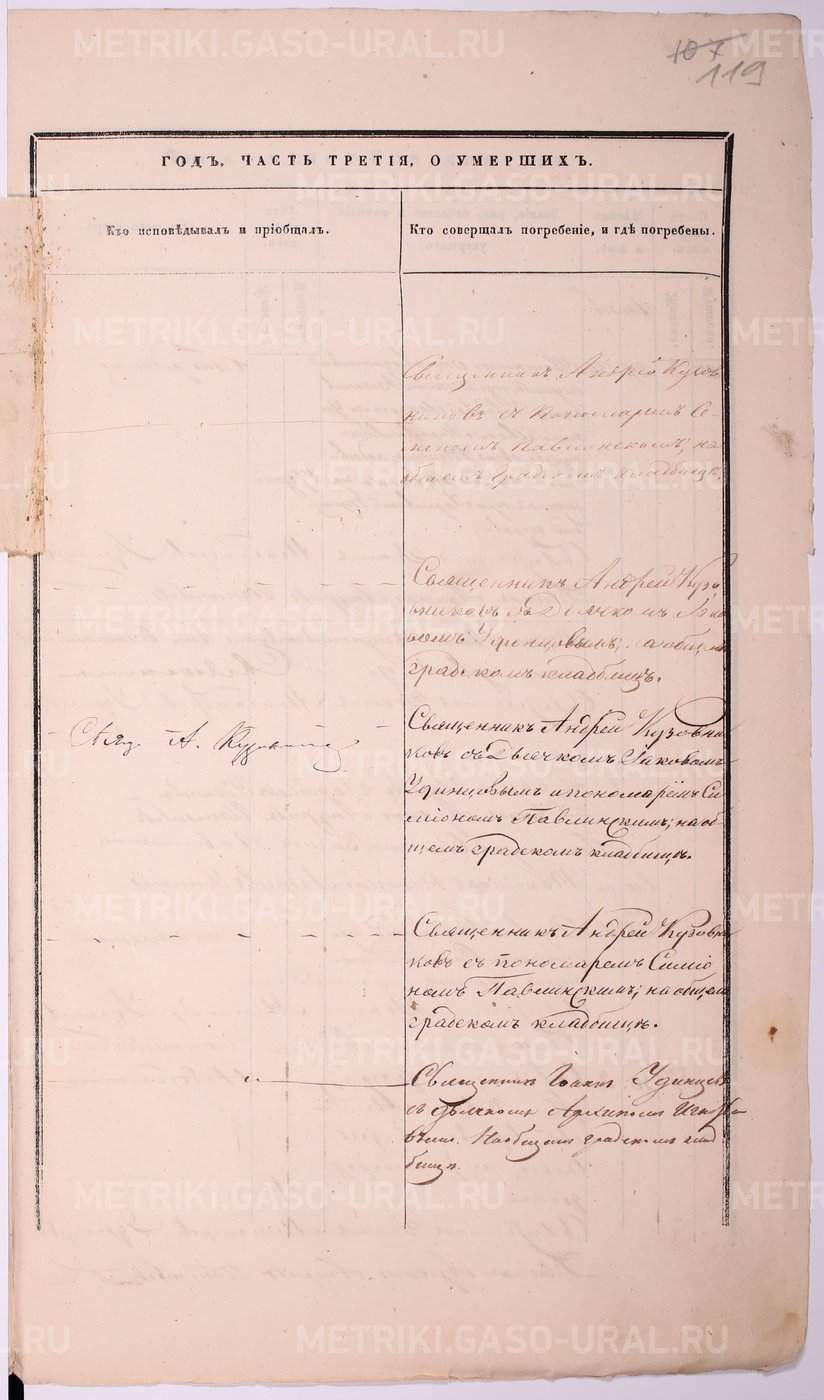 107
119
ГОДЪ, ЧАСТЬ ТРЕТІЯ, О УМЕРШИХЪ.
Кто исповѣдывалъ и пріобщалъ.
Кто совершалъ погребеніе, и гдѣ погребены.
Священникъ Андрей Кузов
никовъ съ Пономаремъ Се-
меномъ Павлинскомъ; на
общемъ градскомъ кладбищѣ.
Священникъ Андрей Кузо
вниковъ съ Дьячкомъ Яко
вомъ Удинцовымъ; на общемъ
градскомъ кладбищѣ.
Свящ А.
Священникъ Андрей Кузовни
ковъ съ Дьячкомъ Іаковомъ
Удинцовымъ и пономаремъ Си
міономъ Павлинскимъ; на об
щемъ градскомъ кладбищѣ.
Священникъ Андрей Кузовни
ковъ съ пономаремъ Симіо
номъ Павлинскимъ; на общемъ
градскомъ кладбищѣ.
Священникъ Іоаннъ Удинцевъ
съ дьячкомъ Архипомъ
На общемъ градскомъ клад
бищѣ.
METRIKI.GASO-URAL.RU